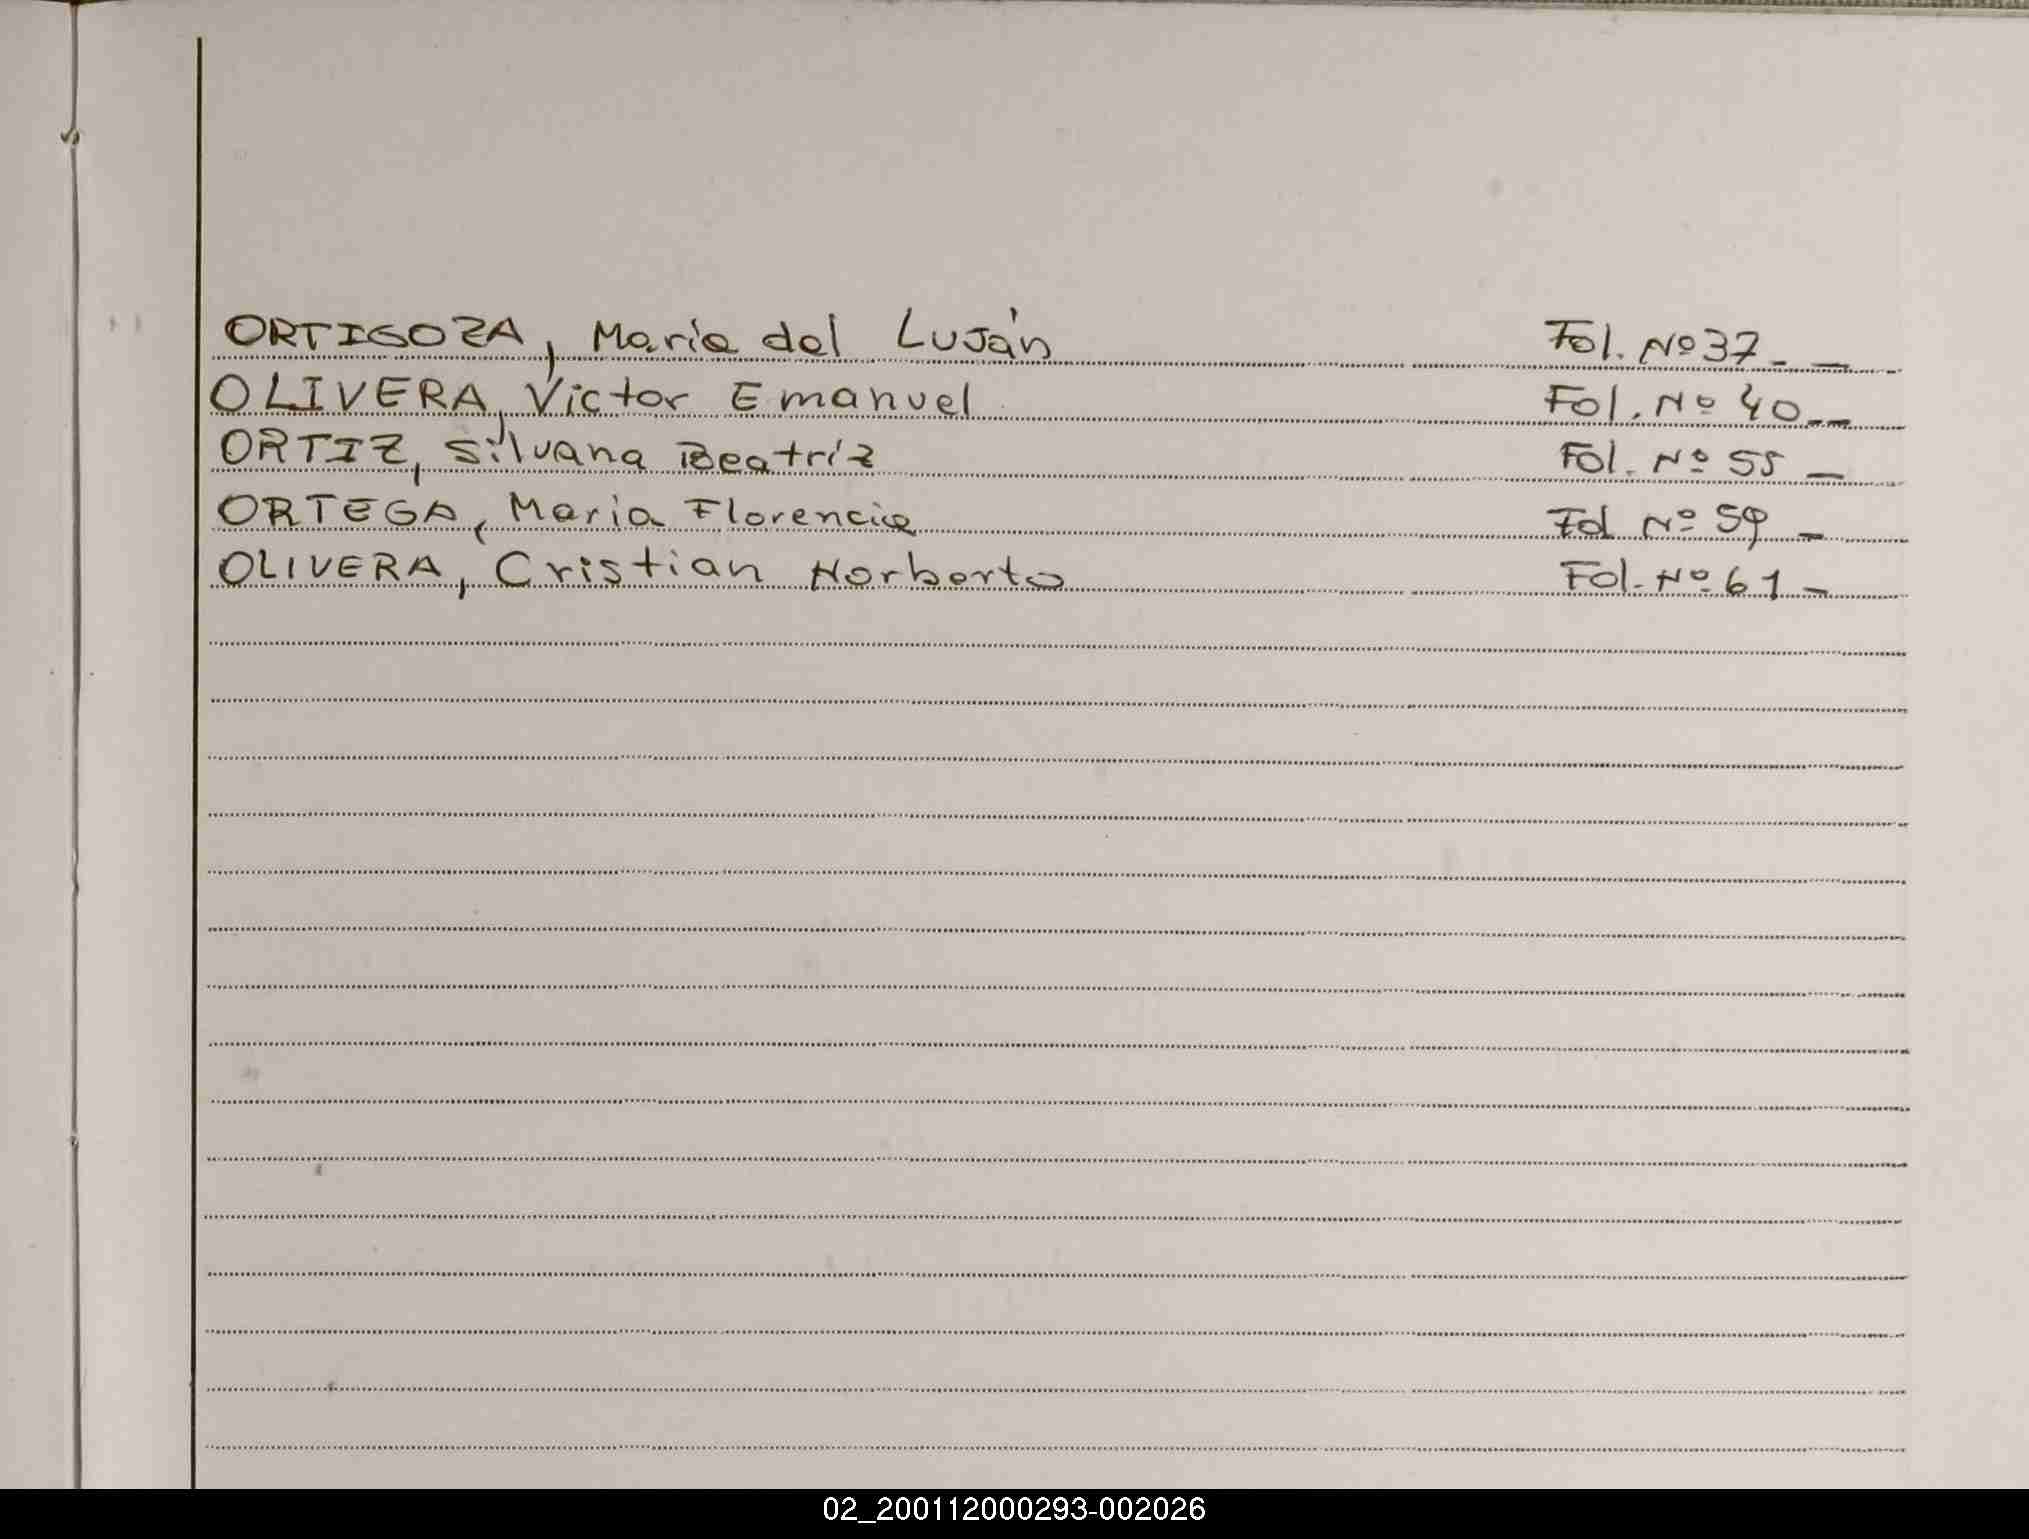 ORTIGOZA, María del Luján Fol. Nº 37 - -
OLIVERA, Víctor Emanuel Fol. Nº 40 - -
ORTIZ, Silvana Beatríz Fol. Nº 55 -
ORTEGA, María Florencia Fol Nº 59 -
OLIVERA, Cristian Norberto Fol. Nº 61 -
02_200112000293-002026